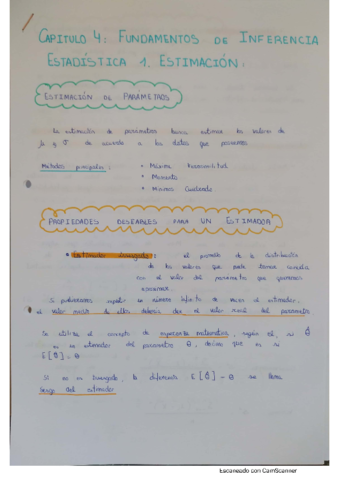 CAPITULO 4: FUNDAMENTOS DE INFERENCIA
ESTADÍSTICA 1. ESTIMACIÓN:
ESTIMACIÓN DE PARÁMETROS
La estimación de parámetros busca estimar los valores de
μ y σ de acuerdo a los datos que poseemos
Métodos principales: • Máxima Verosimilitud
• Momentos
• Mínimos Cuadrados
PROPIEDADES DESEABLES PARA UN ESTIMADOR
Estimador Insesgado: el promedio de la distribución
de los valores que puede tomar coincida
con el valor del parámetro que queremos
Si pudiéramos repetir un número infinito de veces el estimador,
el valor medio de ellos debería dar el valor real del parámetro
Se utiliza el concepto de esperanza matemática, según el, si θ̂
es un estimador del parámetro θ, decimos que es si
E[θ̂] = θ
Si no es insesgado, la diferencia E[θ̂] - θ se llama
sesgo del estimador
Escaneado con CamScanner